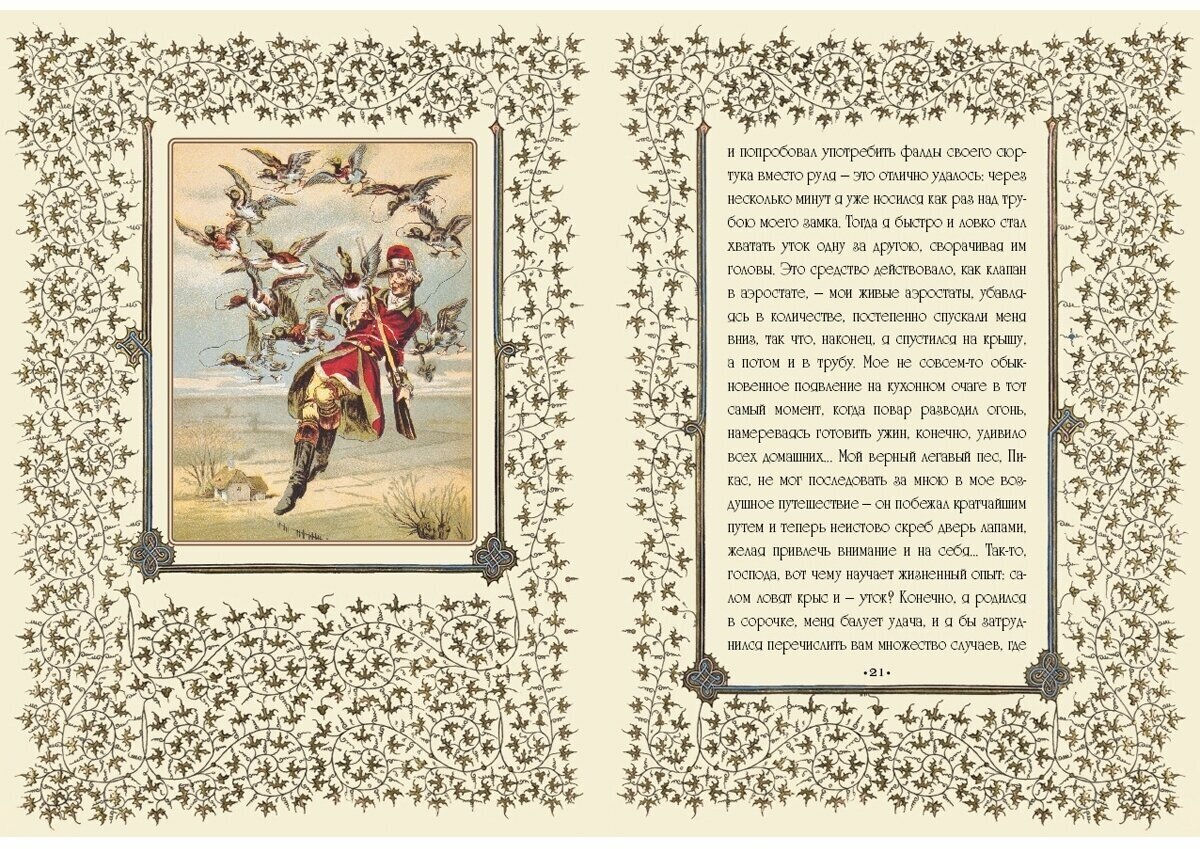 и попробовал употребить фалды своего сюр-
тука вместо руля — это отлично удалось: через
несколько минут я уже носился как раз над тру-
бою моего замка. Тогда я быстро и ловко стал
хватать уток одну за другою, сворачивая им
головы. Это средство действовало, как клапан
в аэростате, — мои живые аэростаты, убавля-
ясь в количестве, постепенно спускали меня
вниз, так что, наконец, я спустился на крышу,
а потом и в трубу. Мое не совсем-то обык-
новенное появление на кухонном очаге в тот
самый момент, когда повар разводил огонь,
намереваясь готовить ужин, конечно, удивило
всех домашних... Мой верный легавый пес, Пи-
кас, не мог последовать за мною в мое воз-
душное путешествие — он побежал кратчайшим
путем и теперь неистово скреб дверь лапами,
желая привлечь внимание и на себя... Так-то,
господа, вот чему научает жизненный опыт: са-
лом ловят крыс и — уток? Конечно, я родился
в сорочке, меня балует удача, и я бы затруд-
нился перечислить вам множество случаев, где
•21•